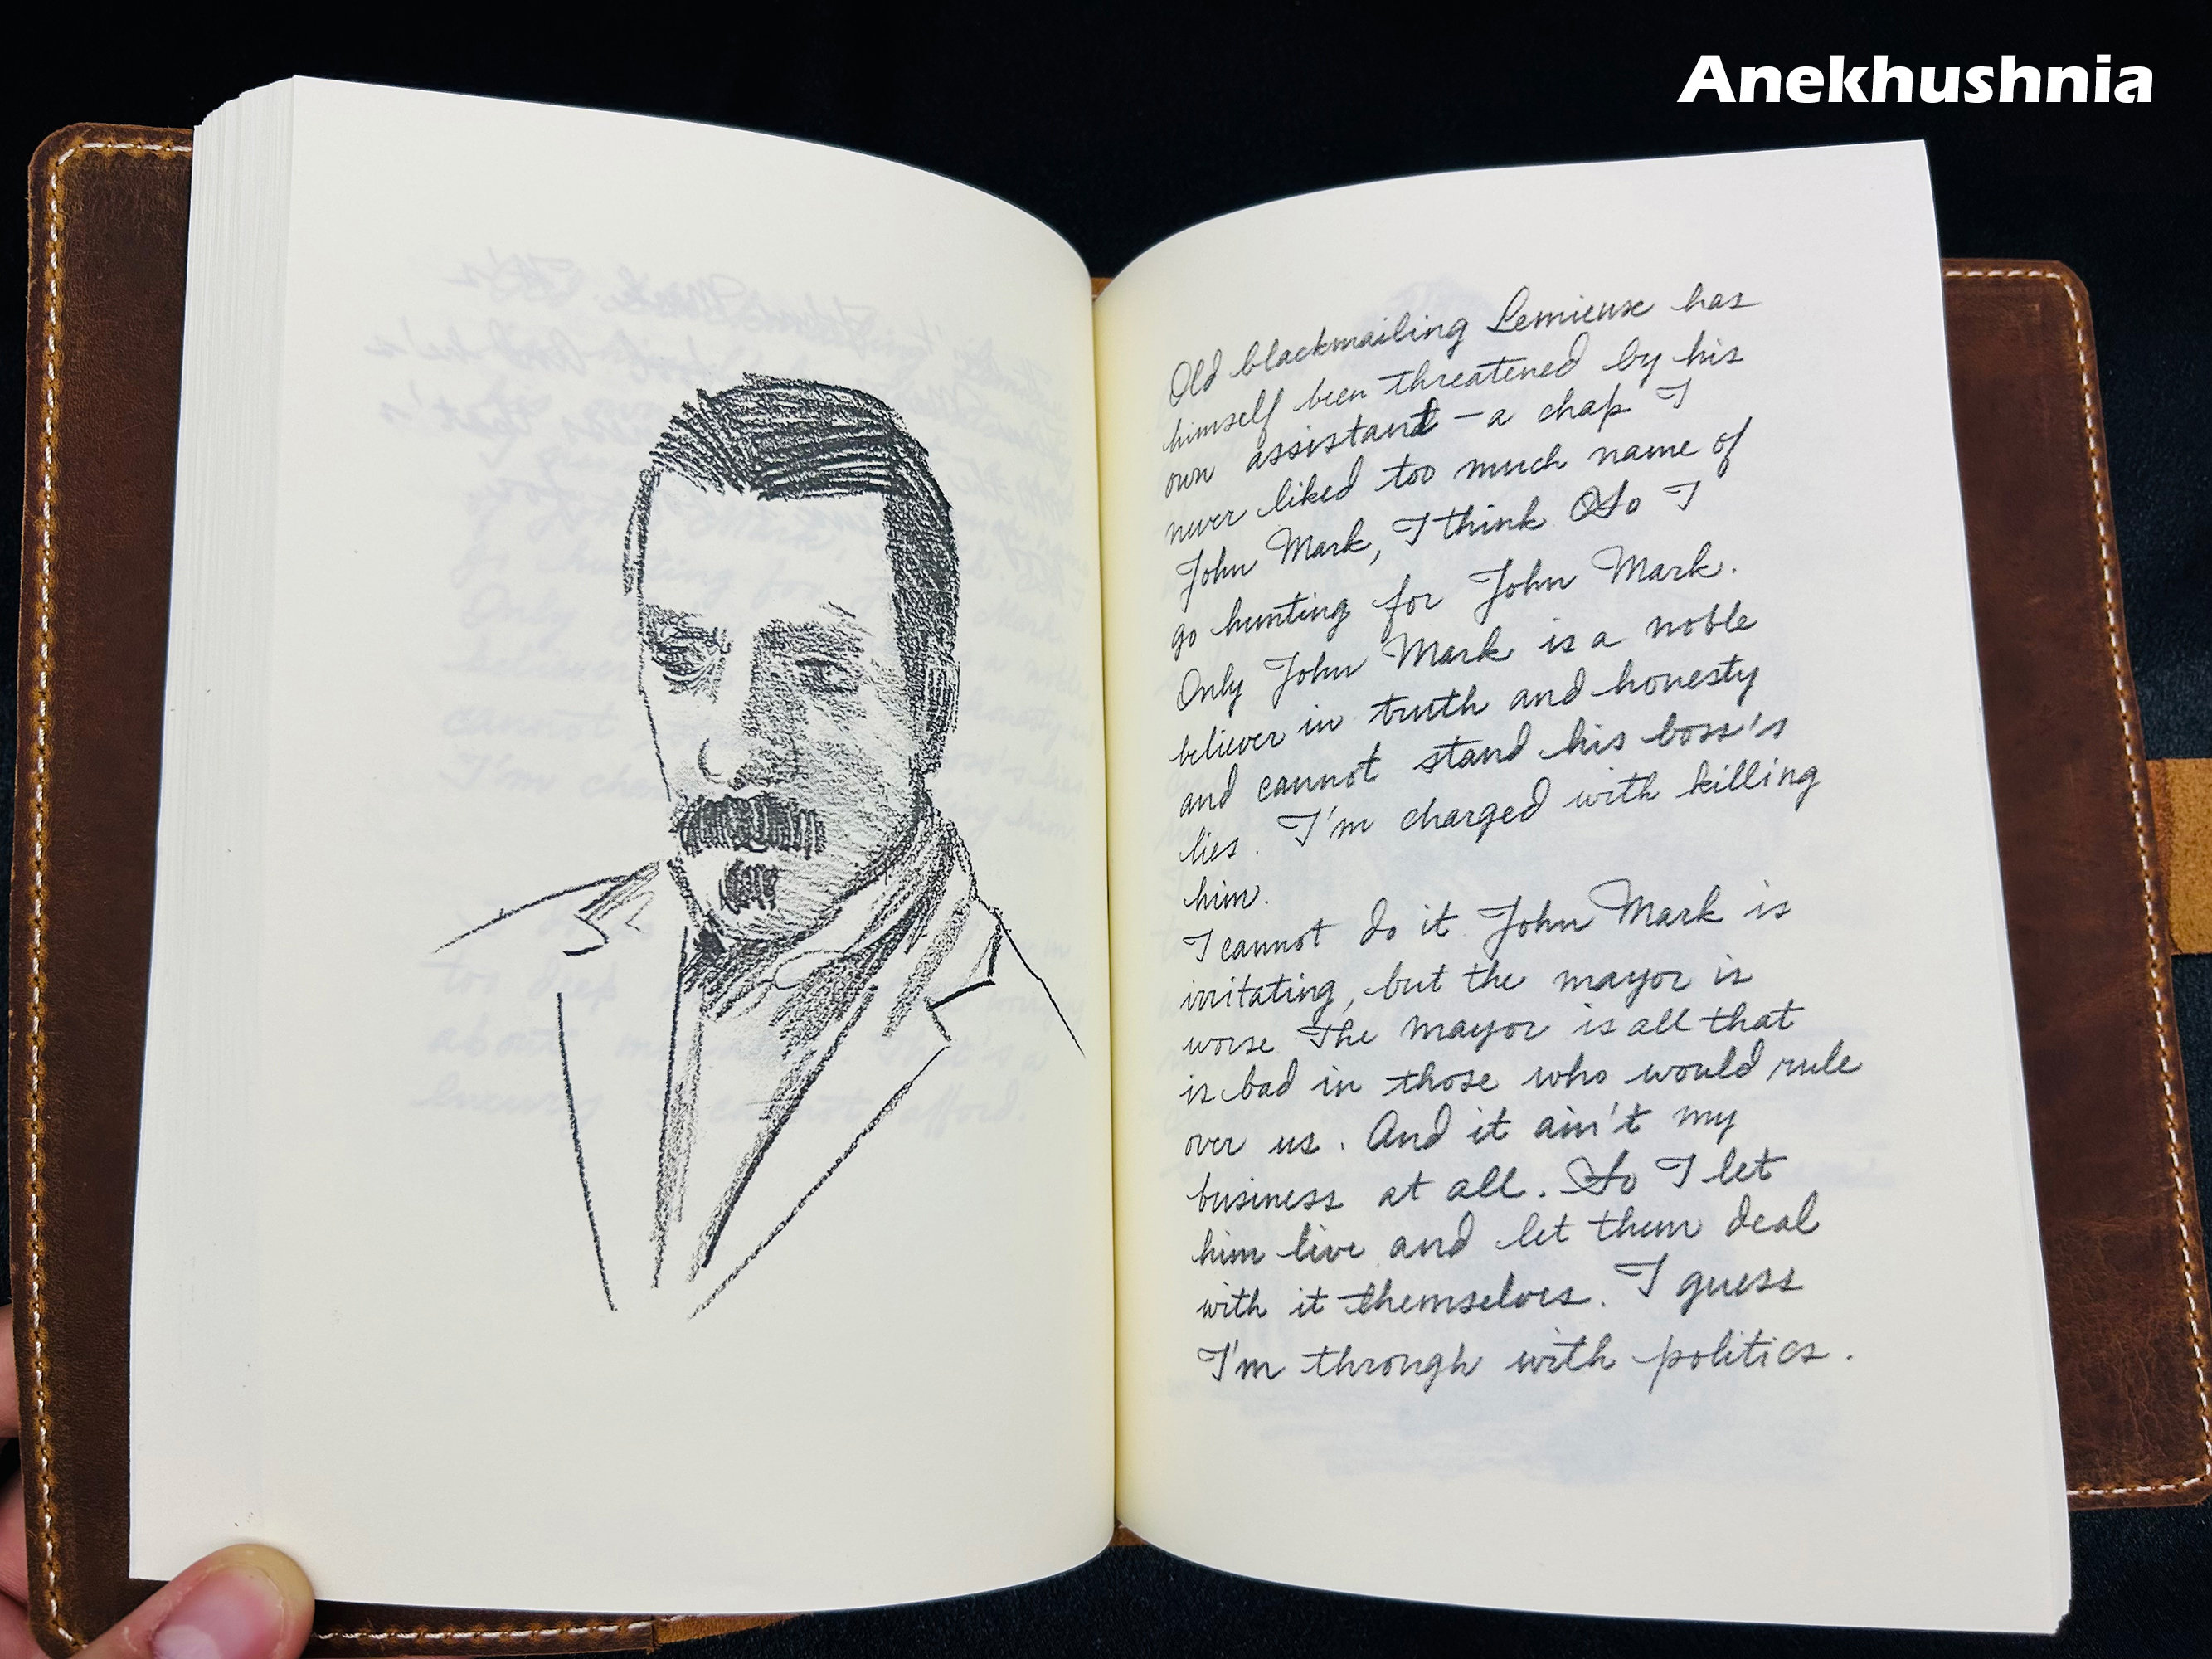 Anekhushnia
Old blackmailing Lemieux has
himself been threatened by his
own assistant - a chap I
never liked too much name of
John Mark, I think So I
go hunting for John Mark.
Only John Mark is a noble
believer in truth and honesty
and cannot stand his boss's
lies. I'm charged with killing
him.
I cannot do it John Mark is
irritating, but the mayor is
worse The mayor is all that
is bad in those who would rule
over us. And it ain't my
business at all. So I let
him live and let them deal
with it themselves. I guess
I'm through with politics.